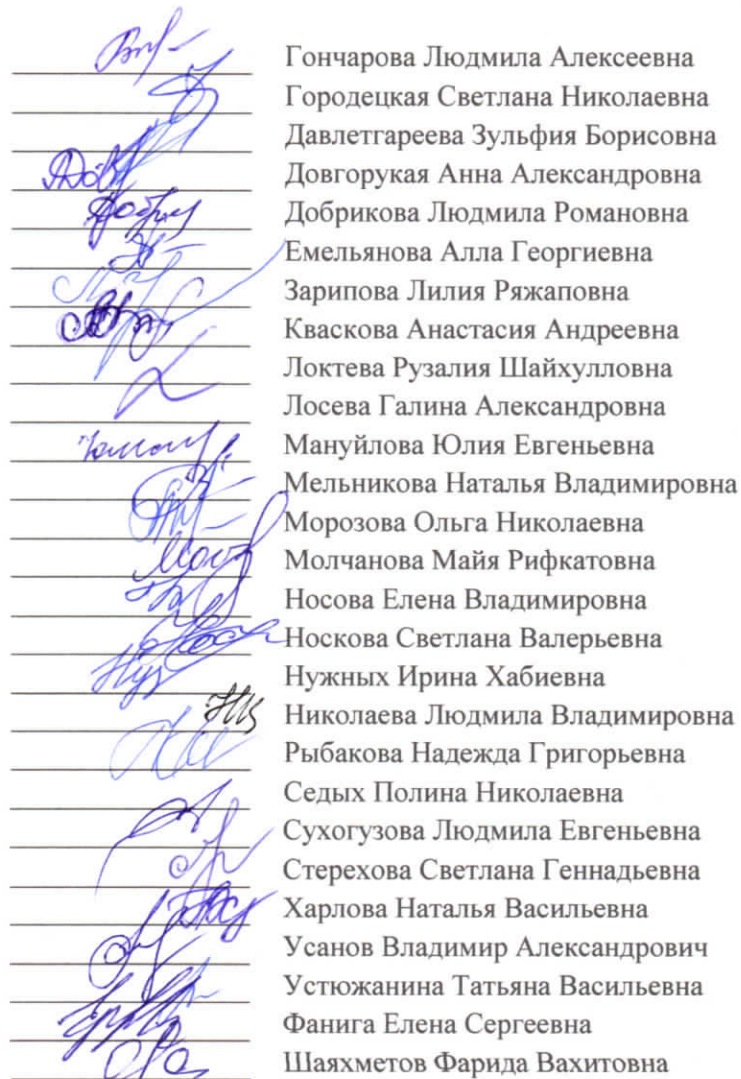 Гончарова Людмила Алексеевна
Городецкая Светлана Николаевна
Давлетгареева Зульфия Борисовна
Довгорукая Анна Александровна
Добрикова Людмила Романовна
Емельянова Алла Георгиевна
Зарипова Лилия Ряжаповна
Кваскова Анастасия Андреевна
Локтева Рузалия Шайхулловна
Лосева Галина Александровна
Мануйлова Юлия Евгеньевна
Мельникова Наталья Владимировна
Морозова Ольга Николаевна
Молчанова Майя Рифкатовна
Носова Елена Владимировна
Носкова Светлана Валерьевна
Нужных Ирина Хабиевна
Николаева Людмила Владимировна
Рыбакова Надежда Григорьевна
Седых Полина Николаевна
Сухогузова Людмила Евгеньевна
Стерехова Светлана Геннадьевна
Харлова Наталья Васильевна
Усанов Владимир Александрович
Устюжанина Татьяна Васильевна
Фанига Елена Сергеевна
Шаяхметов Фарида Вахитовна